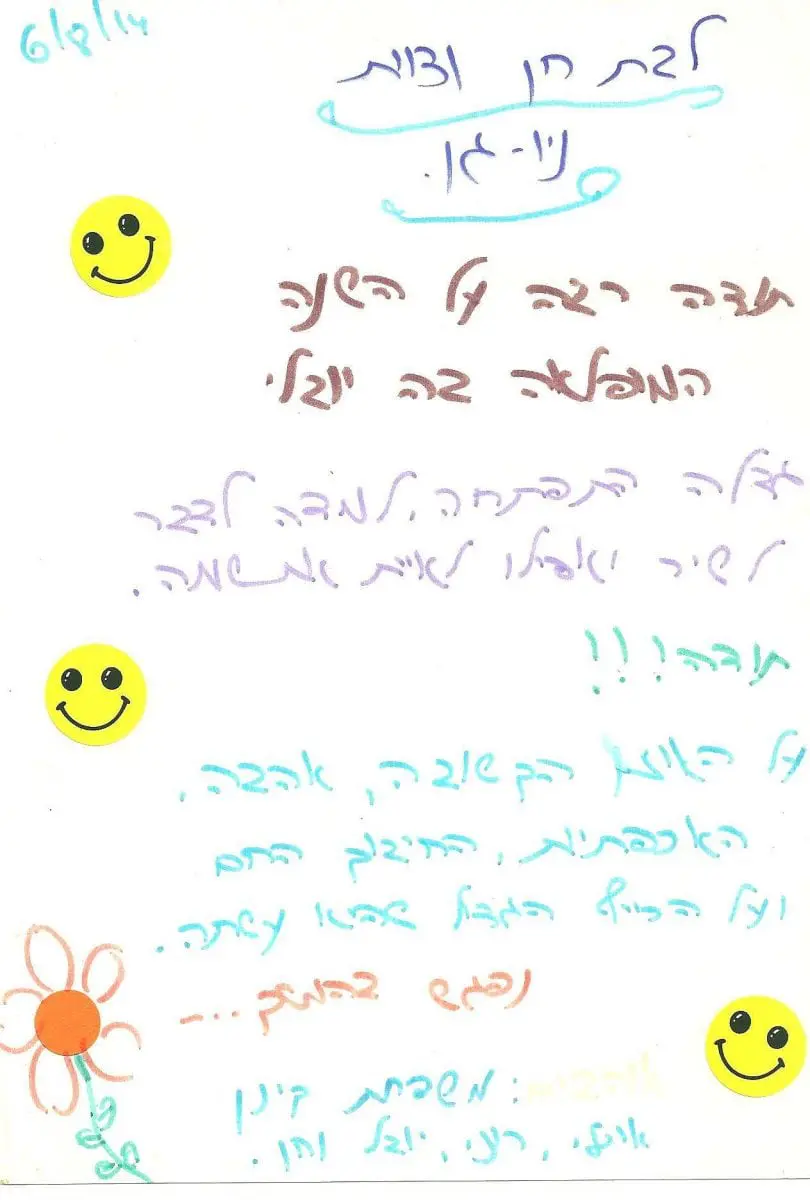 6/8/14
לבת חן וצוות
ניו-גן.
תודה רבה על השנה
המופלאה בה יובלי
גדלה התפתחה, למדה לדבר
לשיר ואפילו לאיית את שמה.
תודה!!!
על האוזן הקשובה, אהבה,
האכפתיות, החיבוק החם
ועל הכיף הגדול שהיא עשתה.
נפגש בהמשך...
אוהבים: משפחת קינן
רעי, יובל וחן.